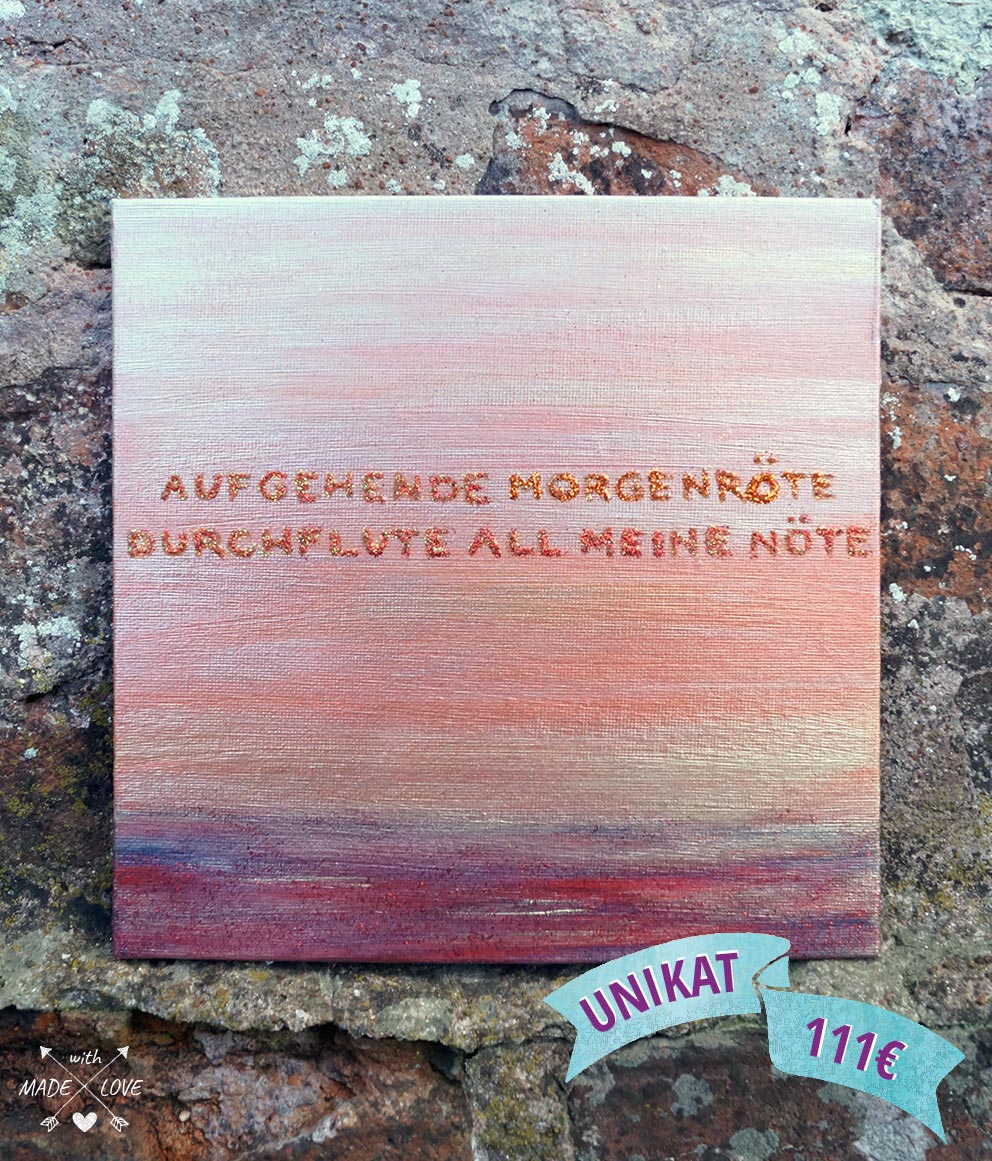 AUFGEHENDE MORGENRÖTE
DURCHFLUTE ALL MEINE NÖTE
UNIKAT
111€
with
MADE LOVE